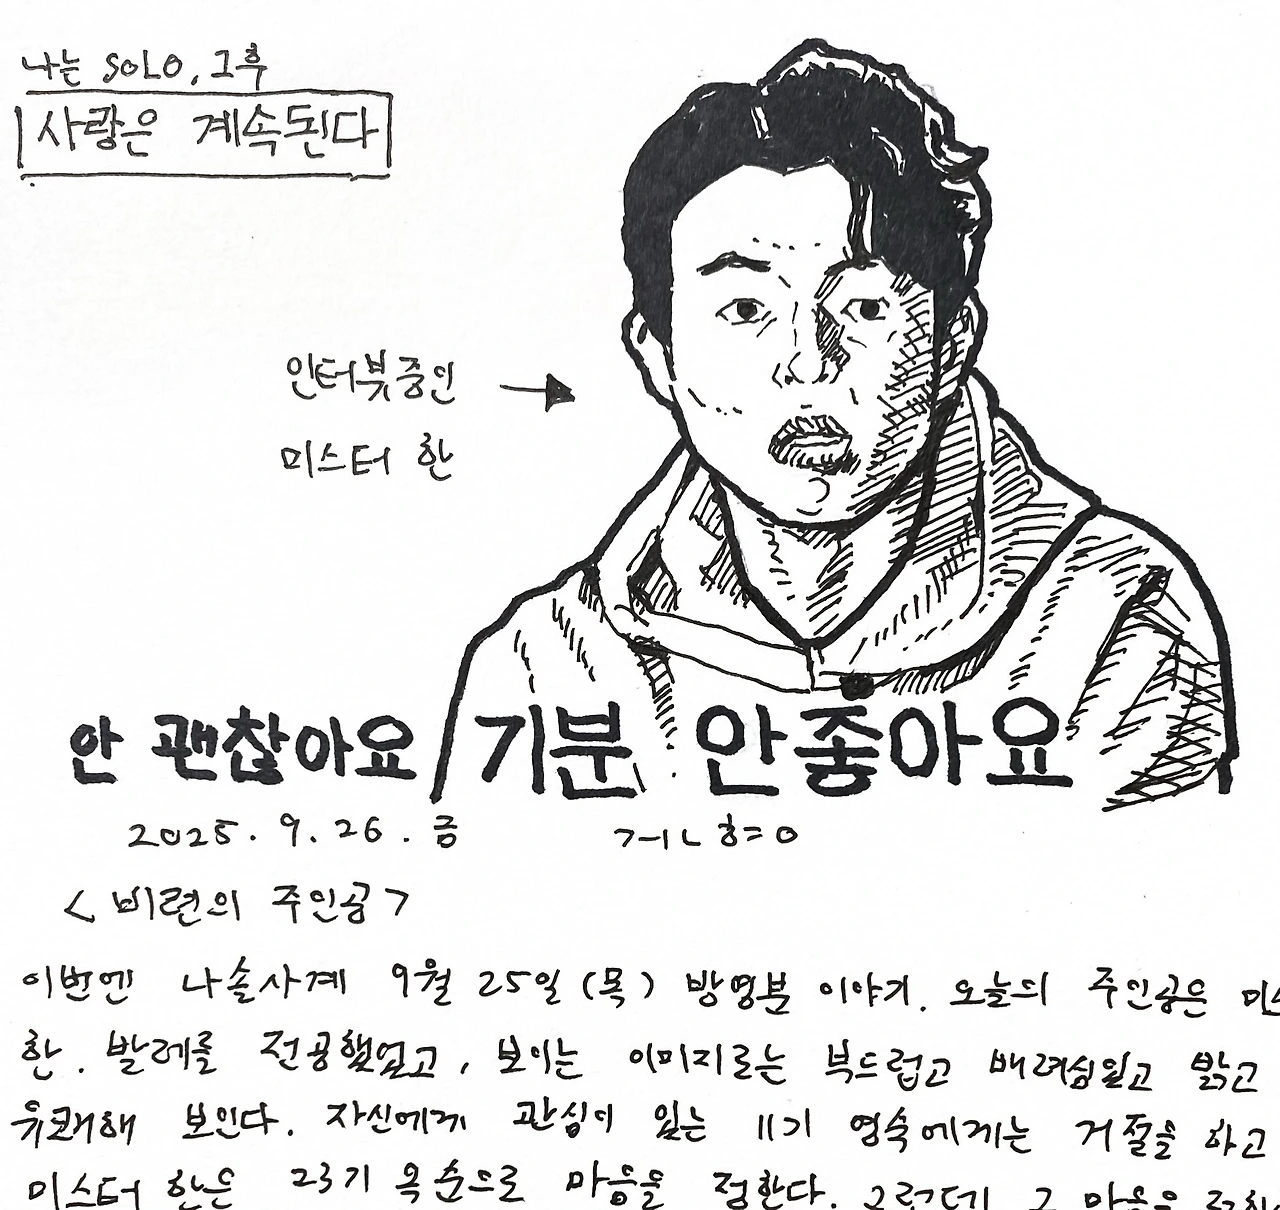 나는 SOLO, 그후
사랑은 계속된다
인터뷰중인
미스터 한
안 괜찮아요 기분 안좋아요
2025. 9. 26. 금
ㄱㅓㄴㅎ=ㅇ
<비련의 주인공>
이번엔 나솔사계 9월 25일 (목) 방영분 이야기. 오늘의 주인공은 미스
한. 발레를 전공했었고, 보이는 이미지로는 부드럽고 배려심있고 밝고
유쾌해 보인다. 자신에게 관심이 있는 11기 영숙에게는 거절을 하고
미스터 한은 23기 옥순으로 마음을 정한다. 그런데 그 마음을